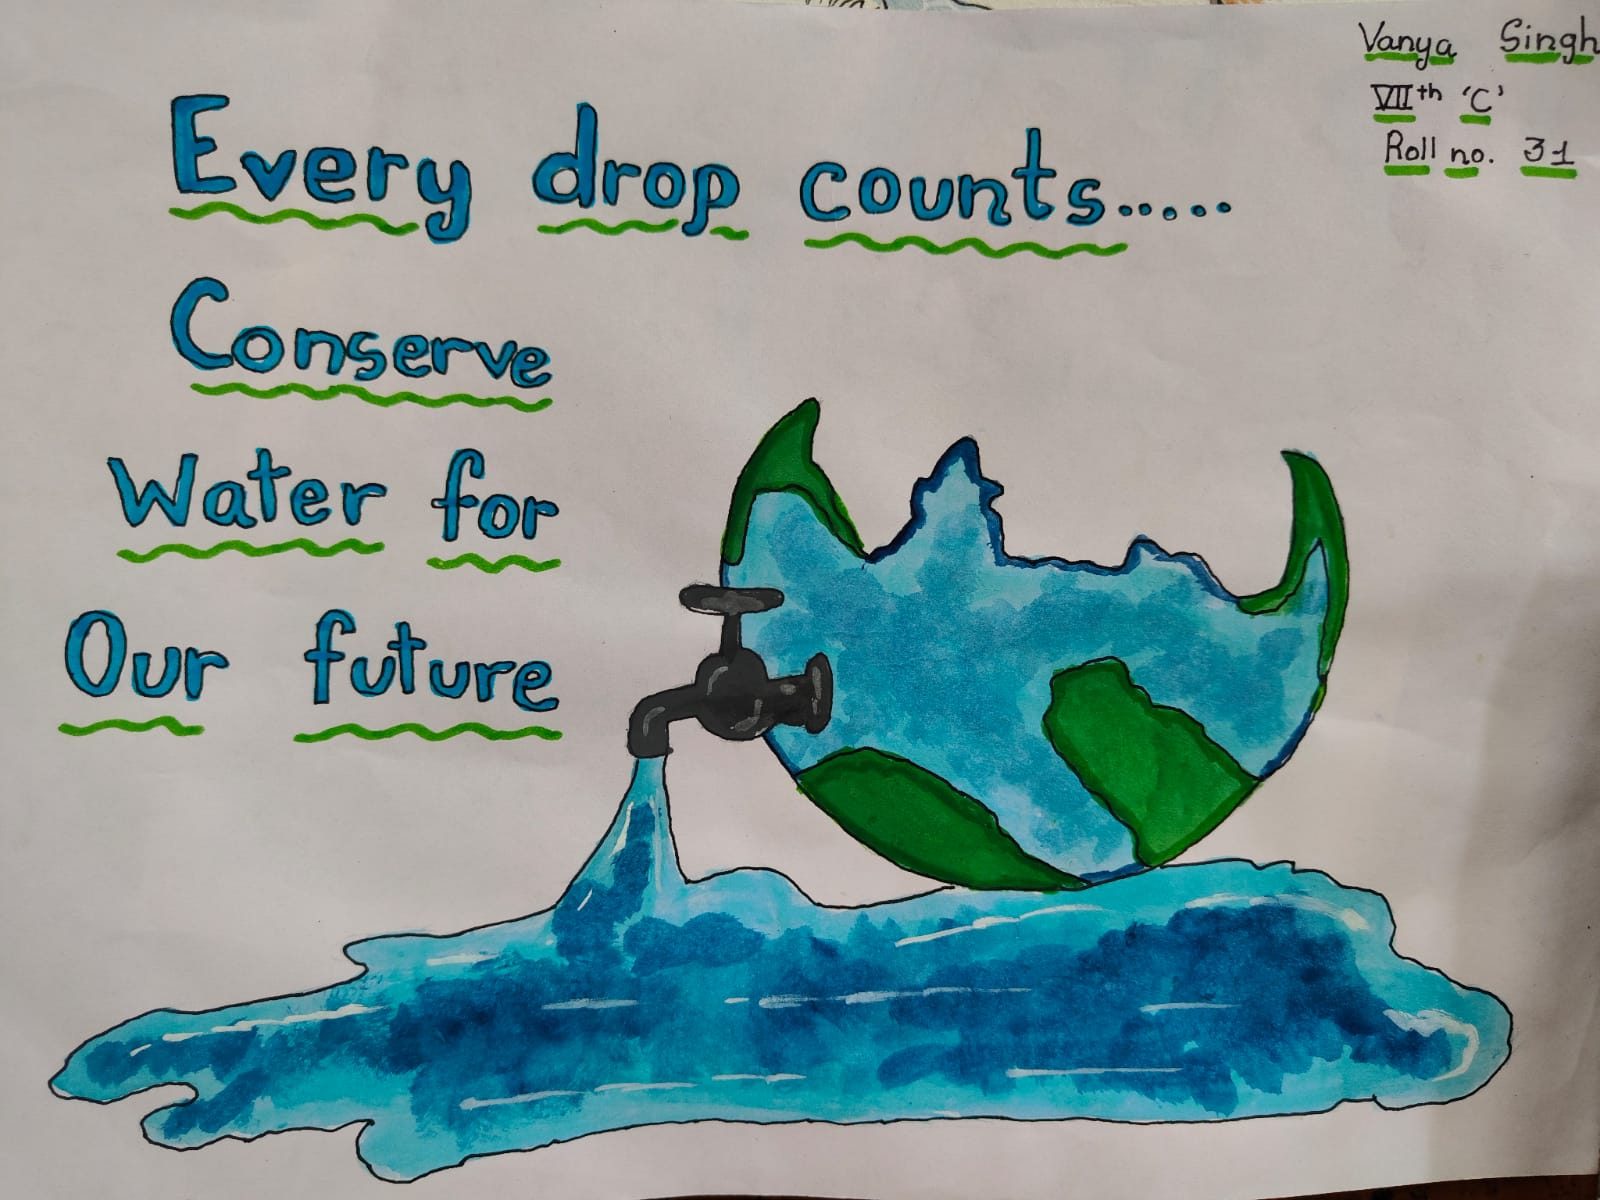 Vanya Singh
VIIth 'C'
Roll no. 31
Every drop counts.....
Conserve
Water for
Our future